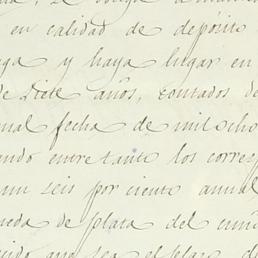 en calidad de depósito
ga y haya lugar en
de Siete años, contados de
ual fecha de mil ocho
ando entretanto los corresp
un seis por ciento anual
neda de plata del cuño
ido que sea el plazo de